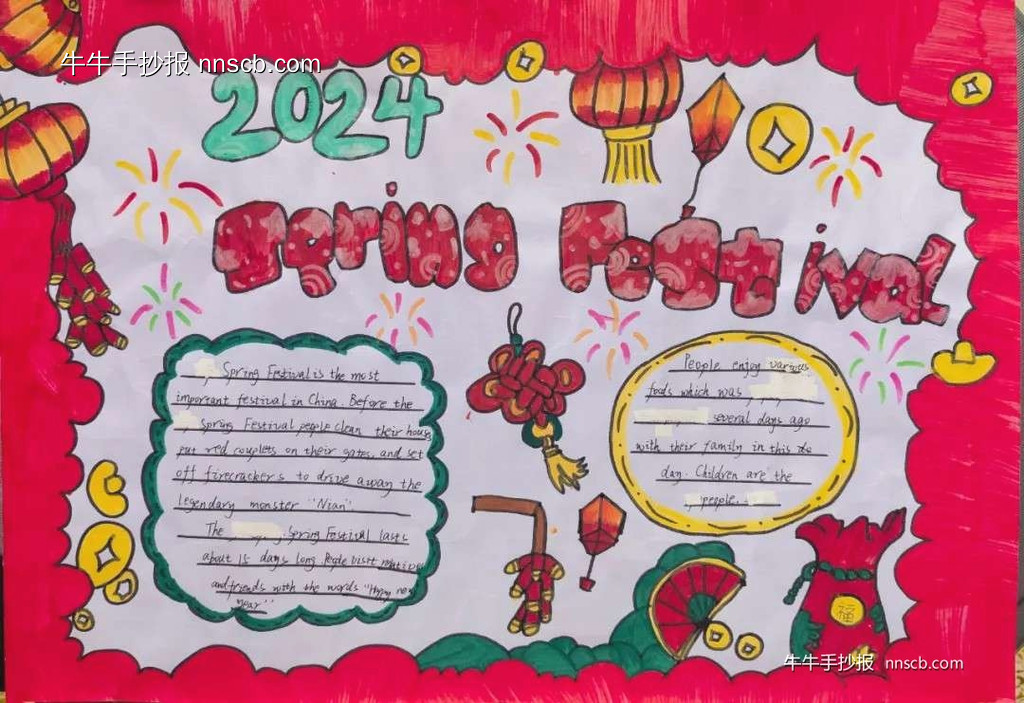 牛牛手抄报 nnscb.com
2024
Spring Festival
Spring Festival is the most
important festival in China. Before the
Spring Festival people clean their house
put red couplets on their gates, and set
off firecrackers to drive away the
legendary monster "Nian".
The Spring Festival lasts
about 15 days long. People visit relatives
and friends with the words "Happy new
year"
People enjoy various
foods which was
several days ago
with their family in this
day. Children are the
people.
福
牛牛手抄报 nnscb.com